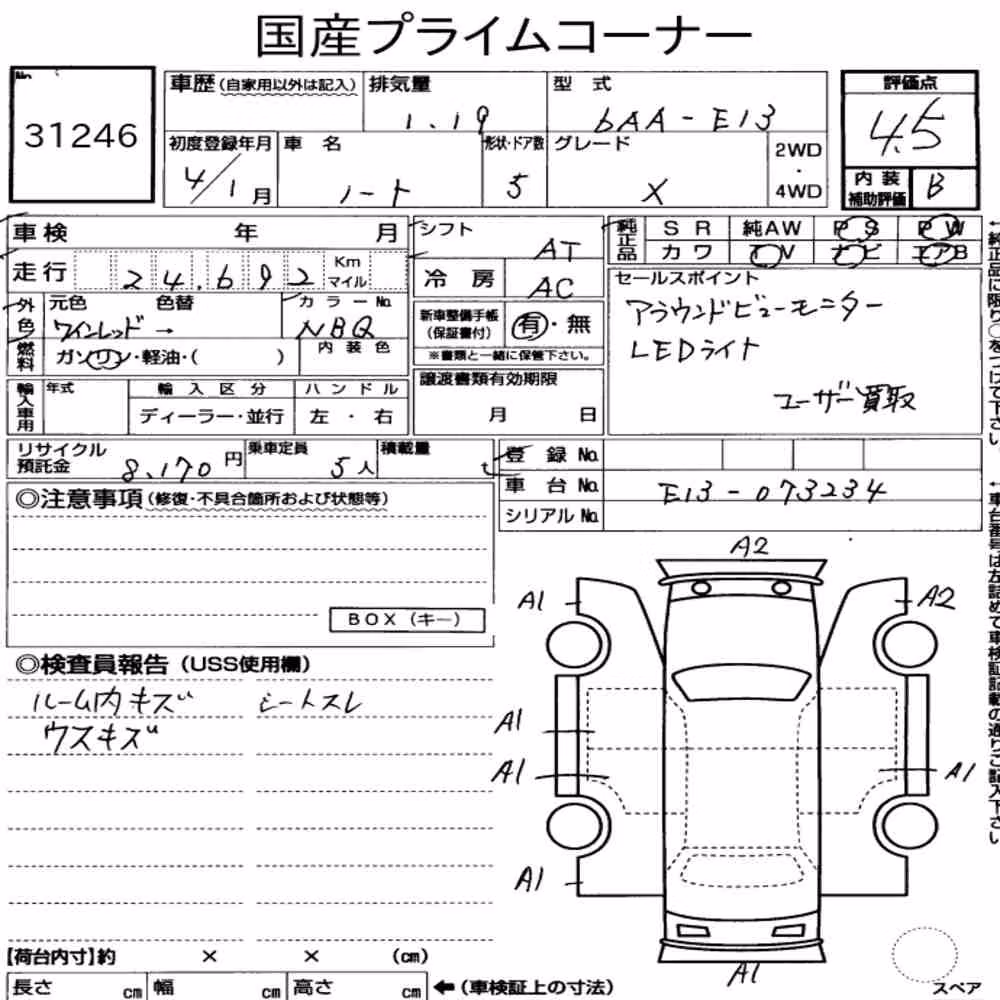 国産プライムコーナー
No.
31246
車歴 (自家用以外は記入)
排気量
1.19
型 式
6AA-E13
評価点
4.5
初度登録年月
4/1月
車 名
ノート
形状・ドア数
5
グレード
X
2WD
・
4WD
内装
補助評価
B
車検 年 月
シフト
AT
純正品
S R 純AW P S P W
カ ワ T V ナ ビ エアB
走行 24,692 Km
マイル
冷房
AC
セールスポイント
アラウンドビューモニター
LEDライト
ユーザー買取
外色
元色 色替
ワインレッド→
カラーNo.
NBQ
新車整備手帳
(保証書付)
有・無
※書類と一緒に保管下さい。
燃料
ガソリン・軽油・( )
内装色
輸入車用
年式
輸入区分
ハンドル
ディーラー・並行
左・右
譲渡書類有効期限
月 日
リサイクル
預託金
8,170円
乗車定員
5人
積載量
t
登録No.
車台No.
E13-073234
シリアルNo.
◎注意事項(修復・不具合箇所および状態等)
BOX(キー)
◎検査員報告(USS使用欄)
ルーム内キズ シートスレ
ウスキズ
A2
A1
A2
A1
A1
A1
A1
A1
【荷台内寸】約 × × (cm)
長さ cm
幅 cm
高さ cm
←(車検証上の寸法)
スペア
←純正品に限り○をつけて下さい。
←車台番号は左詰めで車検証記載の通りご記入下さい